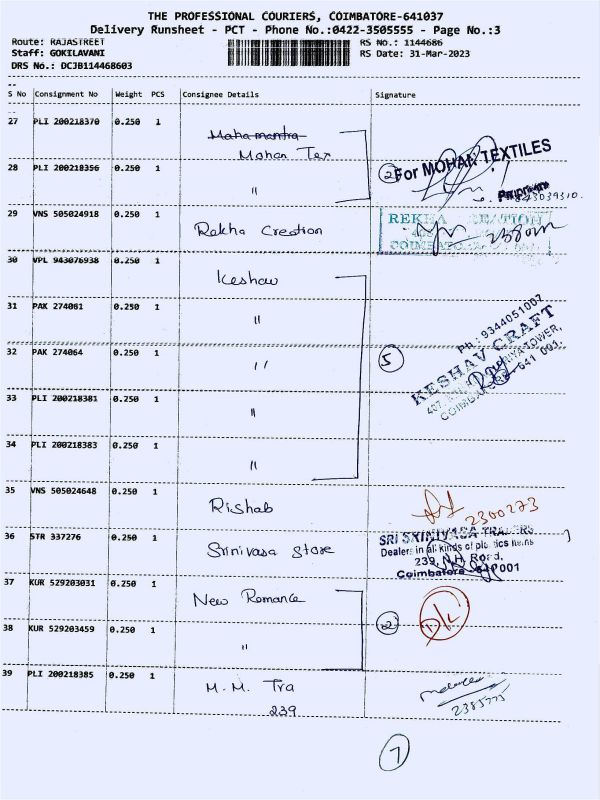 THE PROFESSIONAL COURIERS, COIMBATORE-641037
Delivery Runsheet - PCT - Phone No.:0422-3505555 - Page No.:3
Route: RAJASTREET
RS No.: 1144686
Staff: GOKILAVANI
RS Date: 31-Mar-2023
DRS No.: DCJB114468603
S No Consignment No Weight PCS Consignee Details Signature
27 PLI 200218370 0.250 1
Mahamantra
Mohan Tex
For MOHAN TEXTILES
28 PLI 200218356 0.250 1
"
2
29 VNS 505024918 0.250 1
Rekha Creation
REKHA
COIMBATO
30 VPL 943076938 0.250 1
Keshav
31 PAK 274061 0.250 1
"
Ph : 9344051007
KESHAV CRAFT
32 PAK 274064 0.250 1
"
5
33 PLI 200218381 0.250 1
"
34 PLI 200218383 0.250 1
"
35 VNS 505024648 0.250 1
Rishab
2300273
36 STR 337276 0.250 1
Srinivasa Store
SRI SRINIVASA TRADERS
Dealers in all kinds of plastics items
239, N.H. Road,
Coimbatore - 641001
37 KUR 529203031 0.250 1
New Romance
38 KUR 529203459 0.250 1
"
2
D/L
39 PLI 200218385 0.250 1
M. M. Tra
239
2385775
7